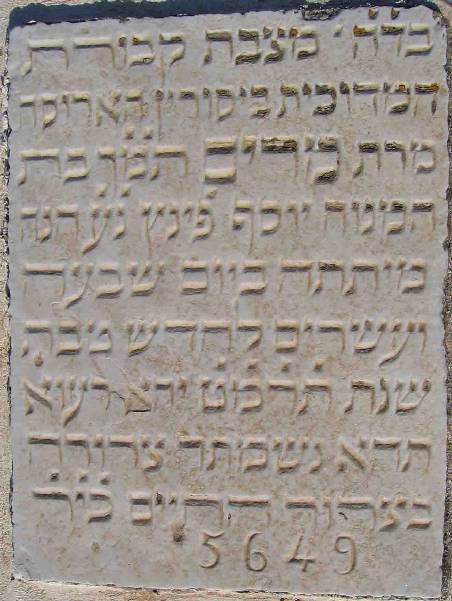 בדה׳ מצבת קבורת
המדוכית ביסורין הארוסה
מרת מרים בת
המנוח יוסף פינץ נע הנה
מיתתה ביום שבעה
ועשרים לחדש טבת
שנת תרמט יהא רעא
תהא נשמתה צרורה
בצרור החיים כיר
5649